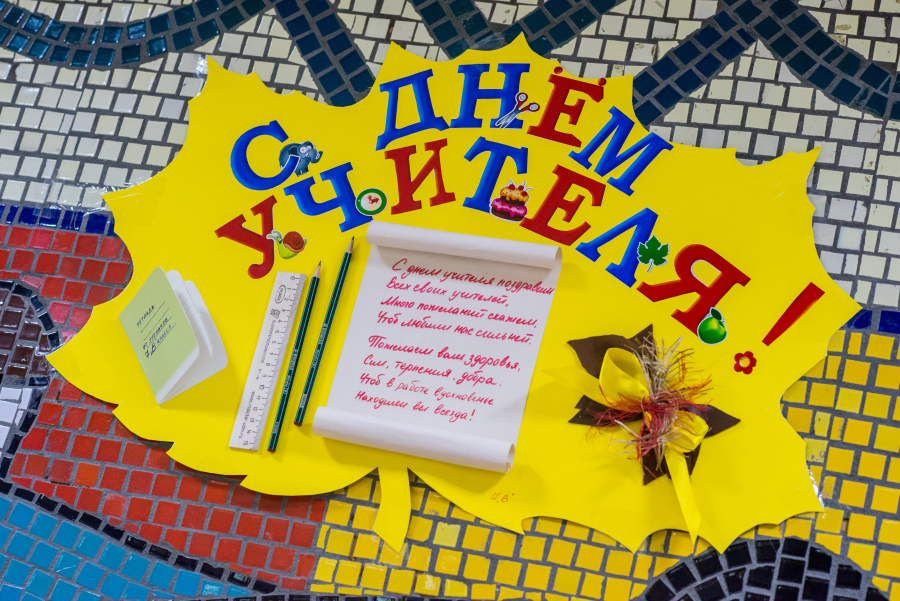 С ДНЁМ
УЧИТЕЛЯ!
С днем учителя поздравим
Всех своих учителей,
Много пожеланий скажем,
Чтоб любили нас сильней.
Пожелаем вам здоровья,
Сил, терпения, добра.
Чтоб в работе вдохновенье
Находили вы всегда!
Тетрадь